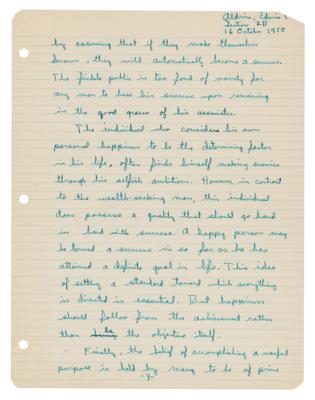 Aldrin, Edwin E
Section 2B
16 October 1950
by assuming that if they make themselves
known, they will automatically become a success.
The fickle public is too fond of variety for
any man to base his success upon remaining
in the good graces of his associates.
The individual who considers his own
personal happiness to be the determining factor
in his life, often finds himself making enemies
through his selfish ambitions. However in contrast
to the wealth-seeking man, this individual
does possess a quality that should go hand
in hand with success. A happy person may
be termed a success in so far as he has
attained a definite goal in life. This idea
of setting a standard toward which everything
is directed is essential. But happiness
should follow from the achievement rather
than be the objective itself.
Finally, the belief of accomplishing a useful
purpose is held by many to be of prime
-4-